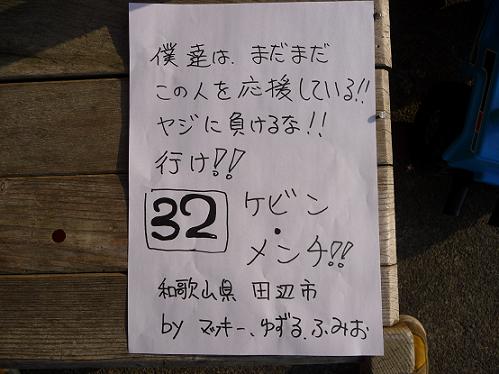 僕達は、まだまだ
この人を応援している!!
ヤジに負けるな!!
行け!!
32 ケビン
・
メンチ!!
和歌山県 田辺市
by マッキー、ゆずる、ふみお